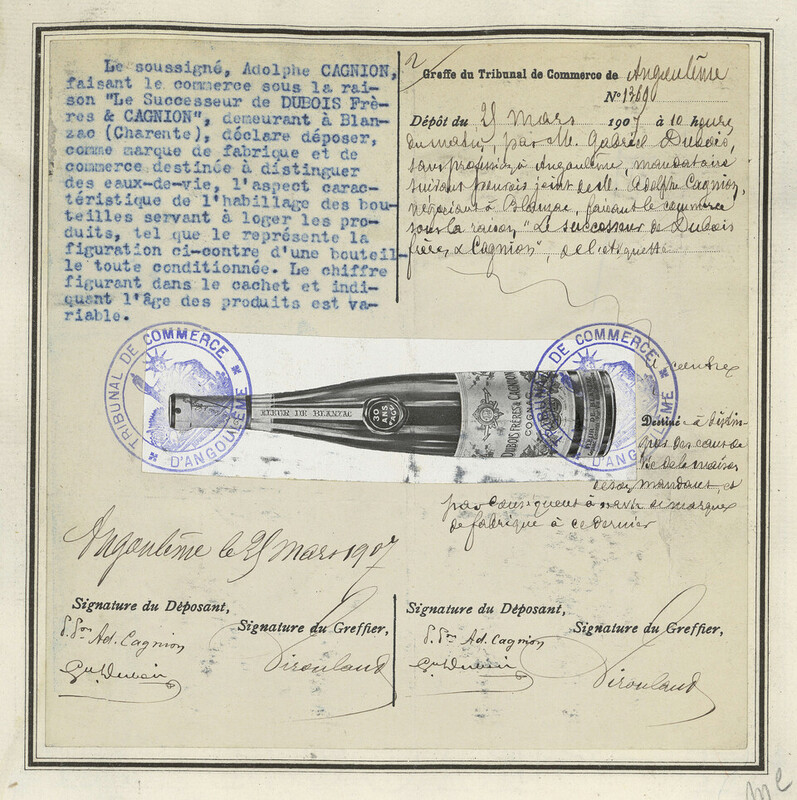 Le soussigné, Adolphe CAGNION,
faisant le commerce sous la rai-
son "Le Successeur de DUBOIS Frè-
res & CAGNION", demeurant à Blan-
zac (Charente), déclare déposer,
comme marque de fabrique et de
commerce destinée à distinguer
des eaux-de-vie, l'aspect carac-
téristique de l'habillage des bou-
teilles servant à loger les pro-
duits, tel que le représente la
figuration ci-contre d'une bouteil-
le toute conditionnée. Le chiffre
figurant dans le cachet et indi-
quant l'âge des produits est va-
riable.
2/
Greffe du Tribunal de Commerce de Angoulême
No 1369
Dépôt du 25 Mars 1907 à 10 heures
du matin, par M. Gabriel Dubois,
sans profession à Angoulême, mandataire
suivant pouvoir joint de M. Adolphe Cagnion,
négociant à Blanzac, faisant le commerce
sous la raison "Le successeur de Dubois
frères & Cagnion", de l'étiquette
ci contre
TRIBUNAL DE COMMERCE
D'ANGOULÊME
FLEUR DE BLANZAC
30
ANS
D'AGE
DUBOIS FRÈRES & CAGNION
COGNAC
TRIBUNAL DE COMMERCE
D'ANGOULÊME
Destiné à
des eaux de
vie de la maison
de son mandant, et
par conséquent à servir de marque
de fabrique à ce dernier
Angoulême le 25 Mars 1907
Signature du Déposant,
Signature du Greffier,
Ad. Cagnion
Signature du Déposant,
Signature du Greffier,
Ad. Cagnion